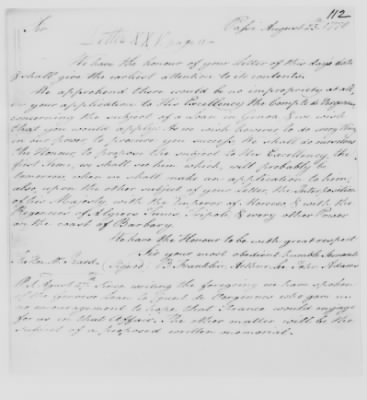 112
Sir Passi August 25th. 1778
Letter XXV page
We have the honour of your Letter of this days date
& shall give the earliest attention to its contents.
We apprehend there would be no impropriety at all,
in your application to His Excellency the Compte de Vergennes
concerning the subject of a Loan in Genoa & we wish
that you would apply. As we wish however to do every thing
in our power to procure you success We shall do ourselves
the Honour to propose the subject to His Excellency, the
first time, we shall see him, which will probably be
tomorrow, when we shall make an application to him;
also, upon the other subject of your Letter, the Interposition
of his Majesty, with the Emperor of Morocco & with the
Regencies of Algiers Tunis, Tripoli & every other Power
on the coast of Barbary.
We have the Honour to be with great respect
Sir your most obedient humble Servants
The Hon. Mr. Izard. (Signed) B. Franklin, Arthur Lee, John Adams
P.S. August 27th Since writing the foregoing we have spoken
of the Genoese Loan to Count de Vergennes who gave us
no encouragement to hope that France would engage
for us in that Affair. The other matter will be the
subject of a proposed written memorial.